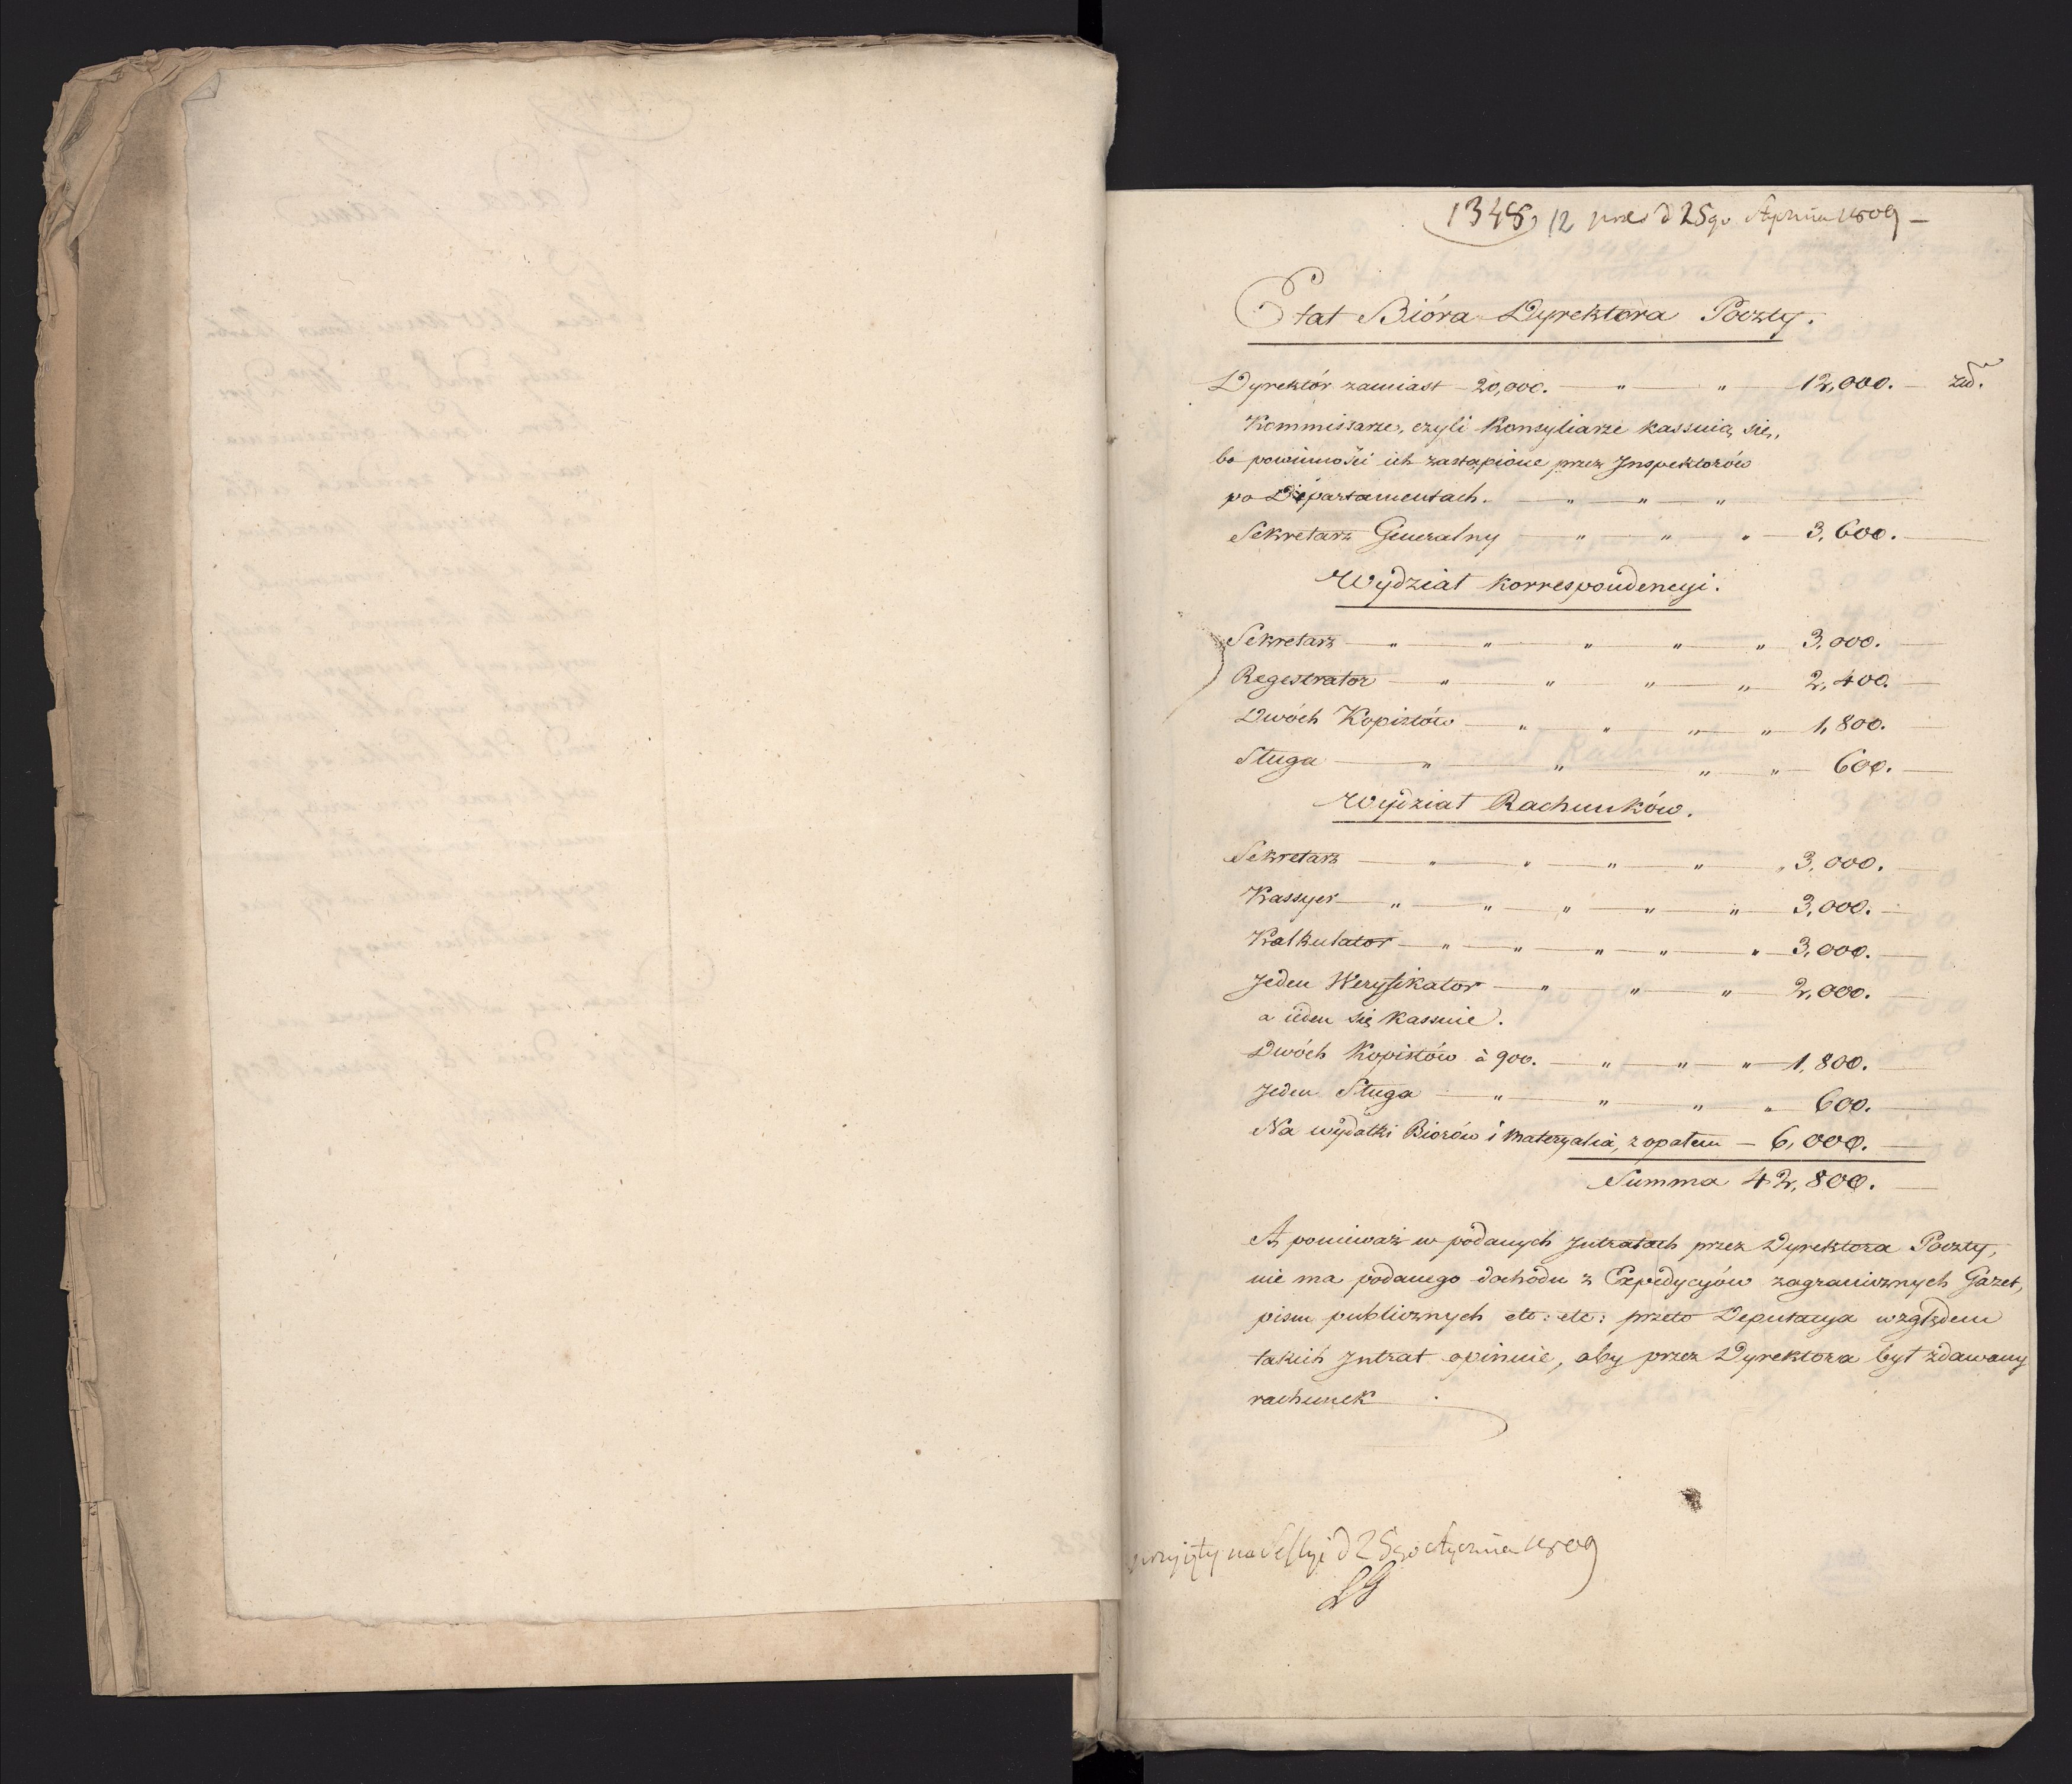 1348, 12 pres d 25go Stycznia 1809 —
Etat Bióra Dyrektora Poczty.
Dyrektór zamiast 20,000. — " — " — 12,000. — złł.
Kommissarze, czyli Konsyliarze kassuią się,
bo powinności ich zastąpione przez Jnspektorów
po Departamentach. — " — " — "
Sekretarz Generalny — " — " — " — 3,600. —
Wydział korrespondencyi.
Sekretarz — " — " — " — " — " 3,000. —
Regestrator — " — " — " — " — 2,400. —
Dwóch Kopistów — " — " — " — " — 1,800. —
Sługa — " — " — " — " — 600. —
Wydział Rachunków.
Sekretarz — " — " — " — " — " 3,000. —
Kassyer — " — " — " — " — " — 3,000. —
Kalkulator — " — " — " — " — " — 3,000. —
Jeden Weryfikator — " — " — " — 2,000. —
a ieden się kassuie.
Dwóch Kopistów à 900. — " — " — " — 1,800. —
Jeden Sługa — " — " — " — " 600. —
Na wydatki Biorów i materyalia, z opałem — 6,000. —
Summa 42,800. —
A ponieważ w podanych Jntratach przez Dyrektora Poczty,
nie ma podanego dochodu z Expedycyów zagranicznych Gazet,
pism publicznych etc: etc: przeto Deputacya względem
takich Jntrat opiniuie, aby przez Dyrektora był zdawany
rachunek
przyięty na Sessyi d 25go Stycznia 1809